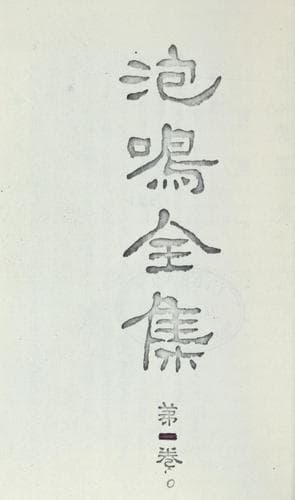 泡鳴全集
第一卷。